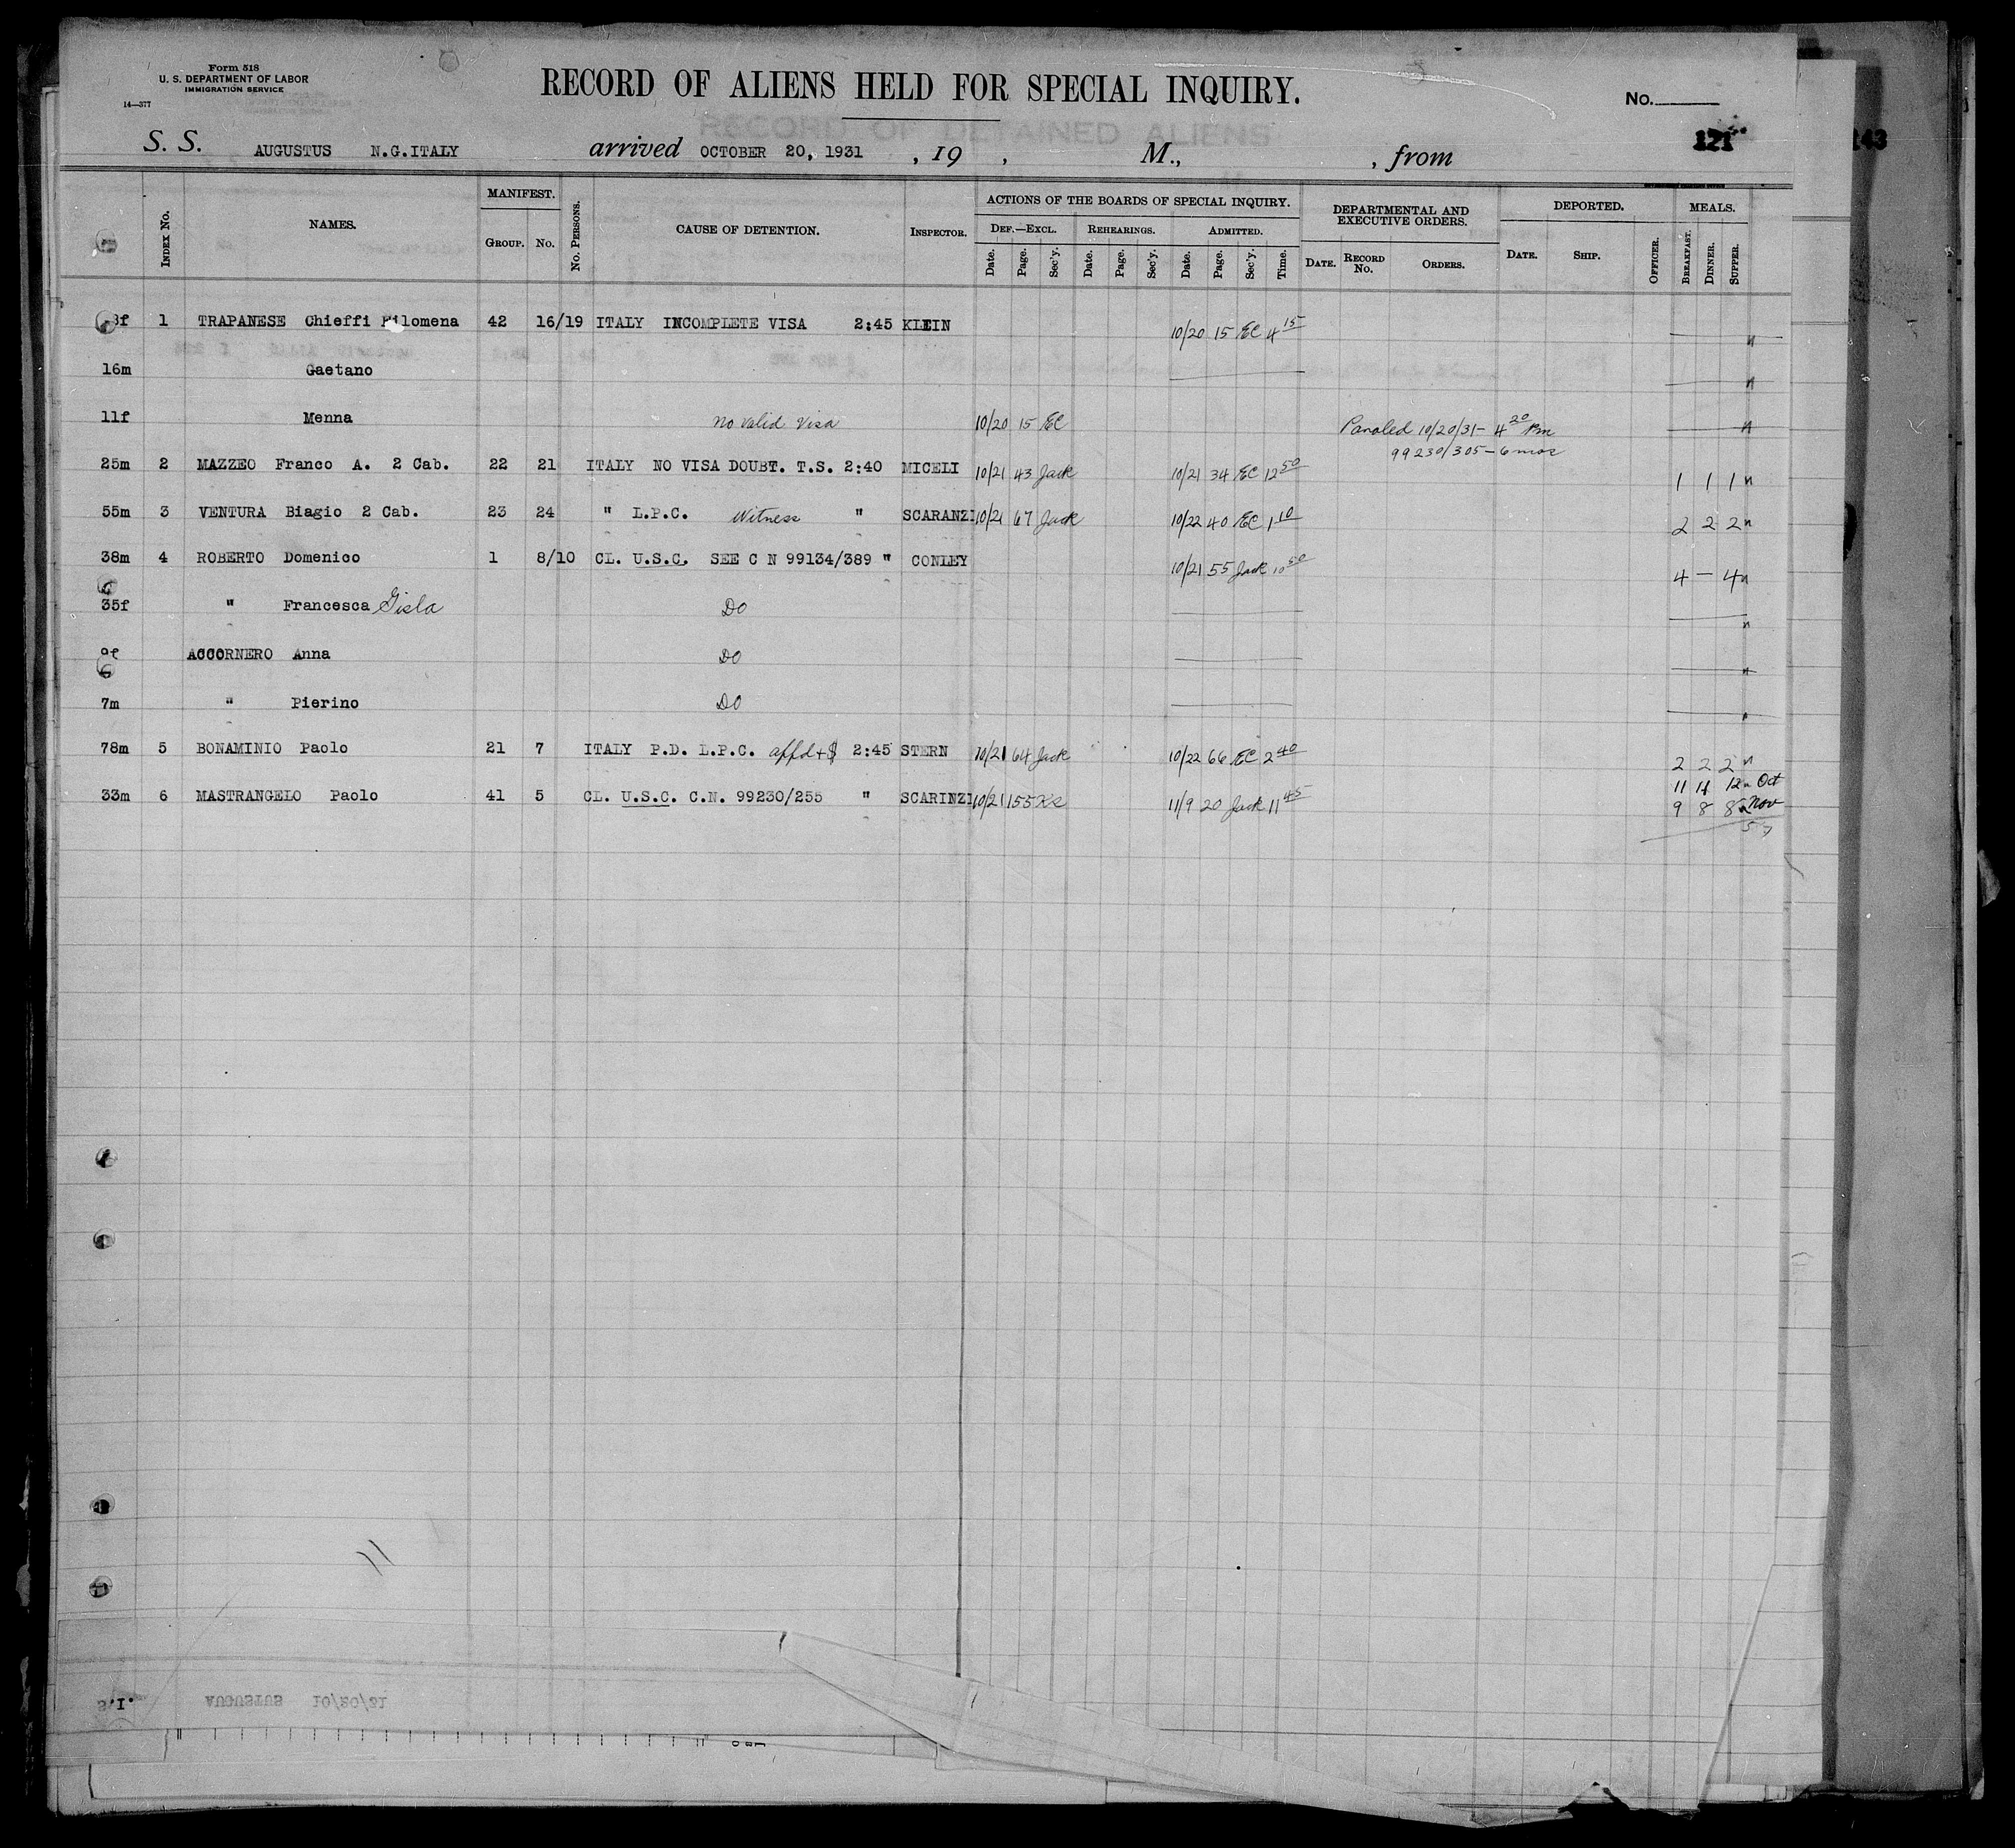 Form 518
U. S. DEPARTMENT OF LABOR
IMMIGRATION SERVICE
14—377
RECORD OF ALIENS HELD FOR SPECIAL INQUIRY.
No.
RECORD OF DETAINED ALIENS
121
143
S. S. AUGUSTUS N.G.ITALY arrived OCTOBER 20, 1931 , 19 , M., , from
INDEX No. NAMES. MANIFEST. No. PERSONS. CAUSE OF DETENTION. INSPECTOR. ACTIONS OF THE BOARDS OF SPECIAL INQUIRY. DEPARTMENTAL AND EXECUTIVE ORDERS. DEPORTED. OFFICER. MEALS.
GROUP. No. DEF.—EXCL. REHEARINGS. ADMITTED.
Date. Page. Sec'y. Date. Page. Sec'y. Date. Page. Sec'y. Time. DATE. RECORD No. ORDERS. DATE. SHIP. BREAKFAST. DINNER. SUPPER.
1 TRAPANESE Chieffi Filomena 42 16/19 ITALY INCOMPLETE VISA 2:45 KLEIN 10/20 15 EC 4 15
16m Gaetano
11f Menna no valid visa 10/20 15 EC Paroled 10/20/31- 4 20 Pm
99230/305 - 6 mos
25m 2 MAZZEO Franco A. 2 Cab. 22 21 ITALY NO VISA DOUBT. T.S. 2:40 MICELI 10/21 43 Jack 10/21 34 EC 12 50 1 1 1
55m 3 VENTURA Biagio 2 Cab. 23 24 " L.P.C. Witness " SCARANZI 10/21 67 Jack 10/22 40 EC 1 10 2 2 2
38m 4 ROBERTO Domenico 1 8/10 CL. U.S.C. SEE C N 99134/389 " CONLEY 10/21 55 Jack 10 50 4 — 4
35f " Francesca Gisla DO
ACCORNERO Anna DO
7m " Pierino DO
78m 5 BONAMINIO Paolo 21 7 ITALY P.D. L.P.C. affd + $ 2:45 STERN 10/21 64 Jack 10/22 66 EC 2 40 2 2 2
33m 6 MASTRANGELO Paolo 41 5 CL. U.S.C. C.N. 99230/255 " SCARINZI 10/21 155 11/9 20 Jack 11 45 11 11 12 Oct
9 8 8 Nov
57
S.I. AUGUSTUS 10/20/31